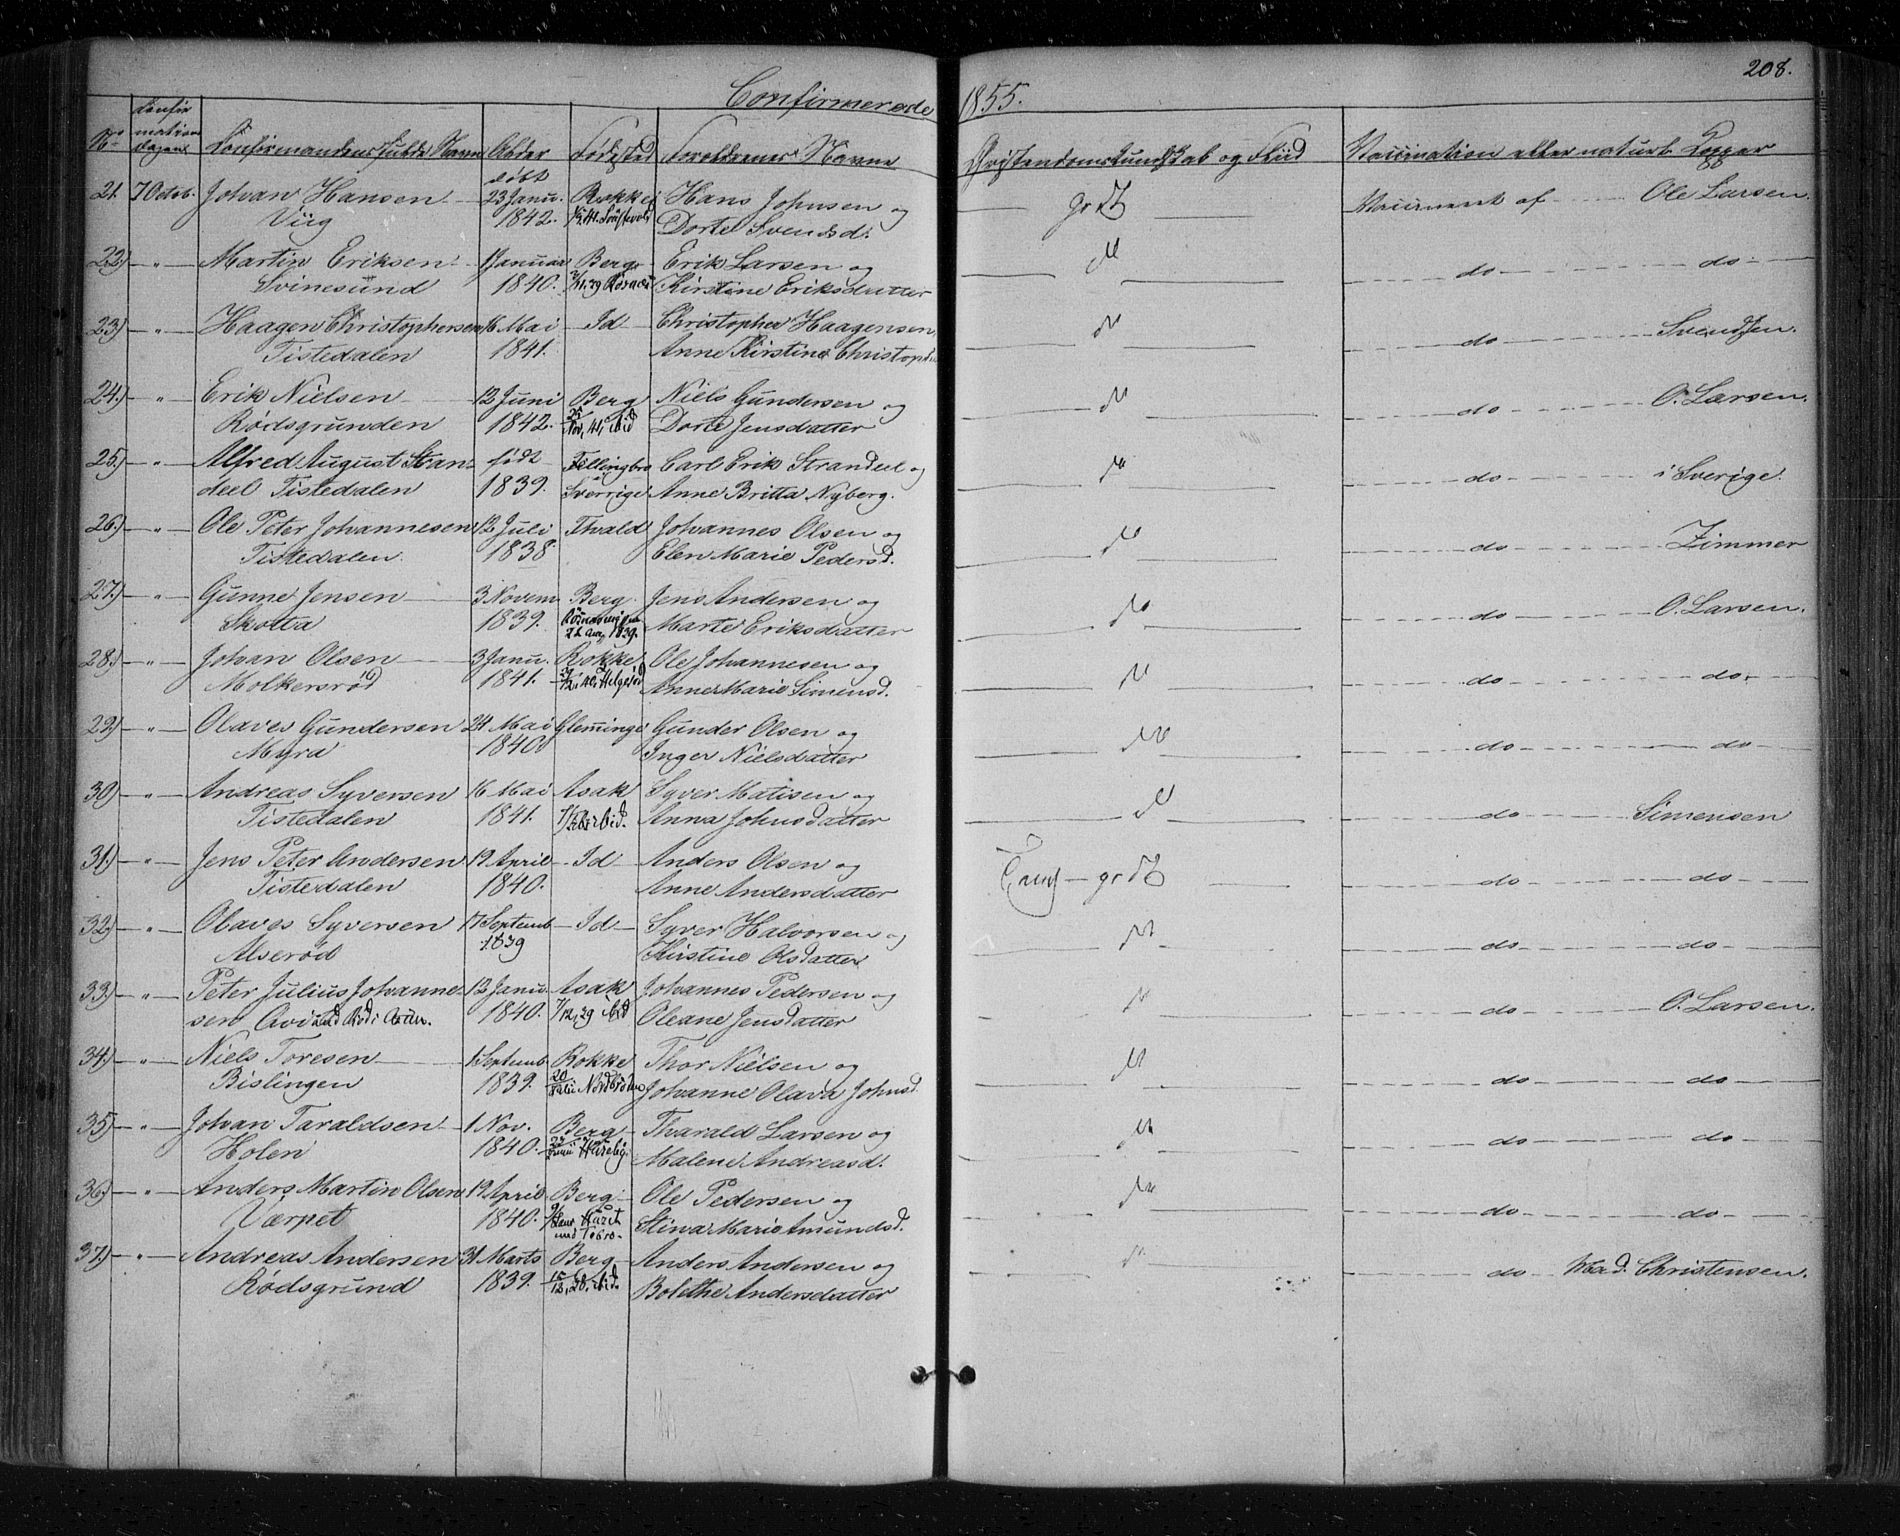 208.
Confirmerede 1855.
No Confirmationsdagen Confirmandens fulde Navn Alder Fødested Forældrenes Navne Christendomskundskab og Flid Vaccination eller naturl. Kopper
21. 7 Octob. Johan Hansen født 23 Janu. Rokke Hans Johnsen og gr dt Vaccineret af Ole Larsen.
Viig 1842. Dorte Svendsd.
22) " Martin Eriksen 1 Januar Berg Erik Larsen og do do
Svinesund 1840. Kirstine Eriksdatter
23) " Haagen Christophersen 16 Mai Id Christopher Haagensen do Svendsen.
Tistedalen 1841. Anne Kirstine Christoph
24.) " Erik Nielsen 12 Juni Berg Niels Gundersen og do O. Larsen.
Rødsgrunden 1842. 25 Nov. 41, ibid Dorte Jensdatter
25.) " Alfred August Stran- født Fellingbro Carl Erik Strandeel og do i Sverige.
deel Tistedalen 1839. Sverrige Anne Britta Nyberg.
26.) " Ole Peter Johannesen 12 Juli Thvald Johannes Olsen og do Zimmer
Tistedalen. 1838 Elen Marie Pedersd.
27.) " Gunne Jensen 3 Novem Berg Jens Andersen og do O. Larsen.
Skotta 1839. Marte Eriksdatter
28.) " Johan Olsen 3 Janu. Rokke Ole Johannesen og do do
Molkersrød 1841. Helgerød Anne Marie Simensd.
29) " Olaves Gundersen 24 Mai Glemminge Gunder Olsen og do do
Myra 1840 Inger Nielsdatter
30) " Andreas Syversen 16 Mai Asak Syver Matisen og do Simensen
Tistedalen 1841. ibid. Anna Johnsdatter
31.) " Jens Peter Andersen 19 April Id Anders Olsen og gr dt do do
Tistedalen 1840. Anne Andersdatter
32.) " Olaves Syversen 17 Septemb Id Syver Halvorsen og do do
Alserød 1839 Kirstine Olsdatter
33.) " Peter Julius Johanne- 12 Janu. Asak Johannes Pedersen og do O. Larsen.
sen 1840. 7/12, 39 ibid Oleane Jensdatter
34) " Niels Toresen 1 Septemb Rokke Thor Nielsen og do do
Bislingen 1839. Johanne Olava Johnsd.
35) " Johan Taraldsen 1 Nov. Berg Tharald Larsen og do do
Holen 1840. Malene Andreasd.
36.) " Anders Martin Olsen 19 April Berg Ole Pedersen og do do
Værpet 1840. Stina Marie Amundsd.
37.) " Andreas Andersen 31 Marts Berg Anders Andersen og do Mad. Christensen.
Rødsgrund 1839. ibid. Bolethe Andersdatter